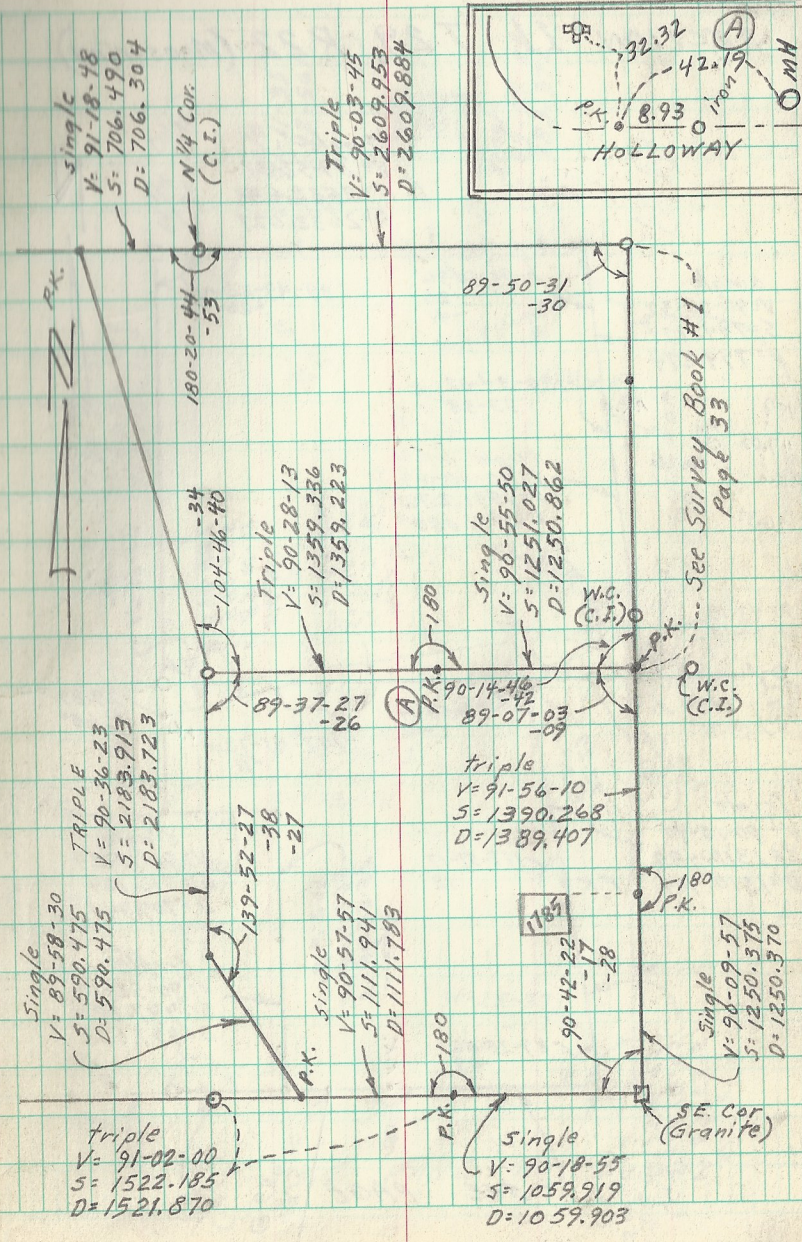 A
32.32
42.19
P.K.
8.93
iron
MH
HOLLOWAY
single
V= 91-18-48
S= 706.490
D= 706.304
N 1/4 Cor.
(C.I.)
Triple
V= 90-03-45
S= 2609.953
D= 2609.884
P.K.
N
180-20-44
-53
89-50-31
-30
See Survey Book #1
Page 33
-34
104-46-40
Triple
V= 90-28-13
S= 1359.336
D= 1359.223
Single
V= 90-55-50
S= 1251.027
D= 1250.862
W.C.
(C.I.)
P.K.
W.C.
(C.I.)
180
P.K.
A
89-37-27
-26
90-14-46
-42
89-07-03
-09
TRIPLE
V= 90-36-23
S= 2183.913
D= 2183.723
triple
V= 91-56-10
S= 1390.268
D= 1389.407
139-52-27
-38
-27
180
P.K.
1785
Single
V= 89-58-30
S= 590.475
D= 590.475
Single
V= 90-57-57
S= 1111.941
D= 1111.783
90-42-22
-17
-28
Single
V= 90-09-57
S= 1250.375
D= 1250.370
P.K.
180
P.K.
S.E. Cor
(Granite)
triple
V= 91-02-00
S= 1522.185
D= 1521.870
Single
V= 90-18-55
S= 1059.919
D= 1059.903